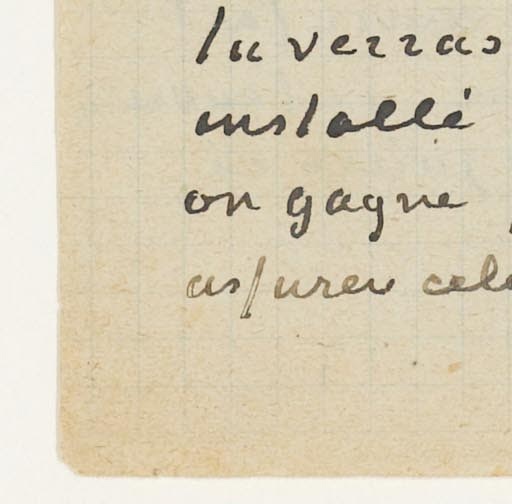 Tu verras
installé
on gagne
assurer cela